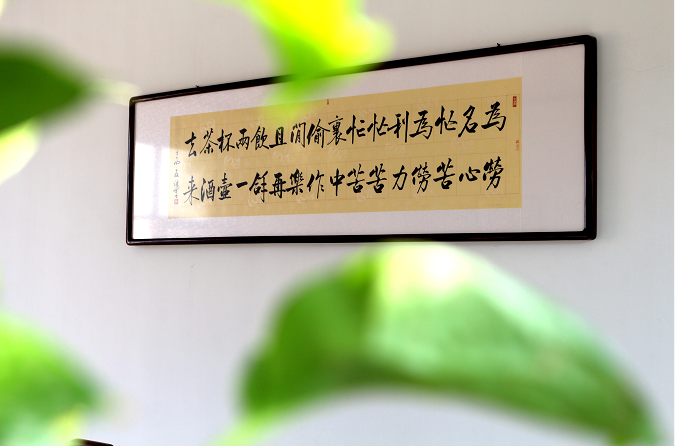 為名忙為利忙忙裏偷閒且飲兩杯茶去
勞心苦勞力苦苦中作樂再斟一壺酒来